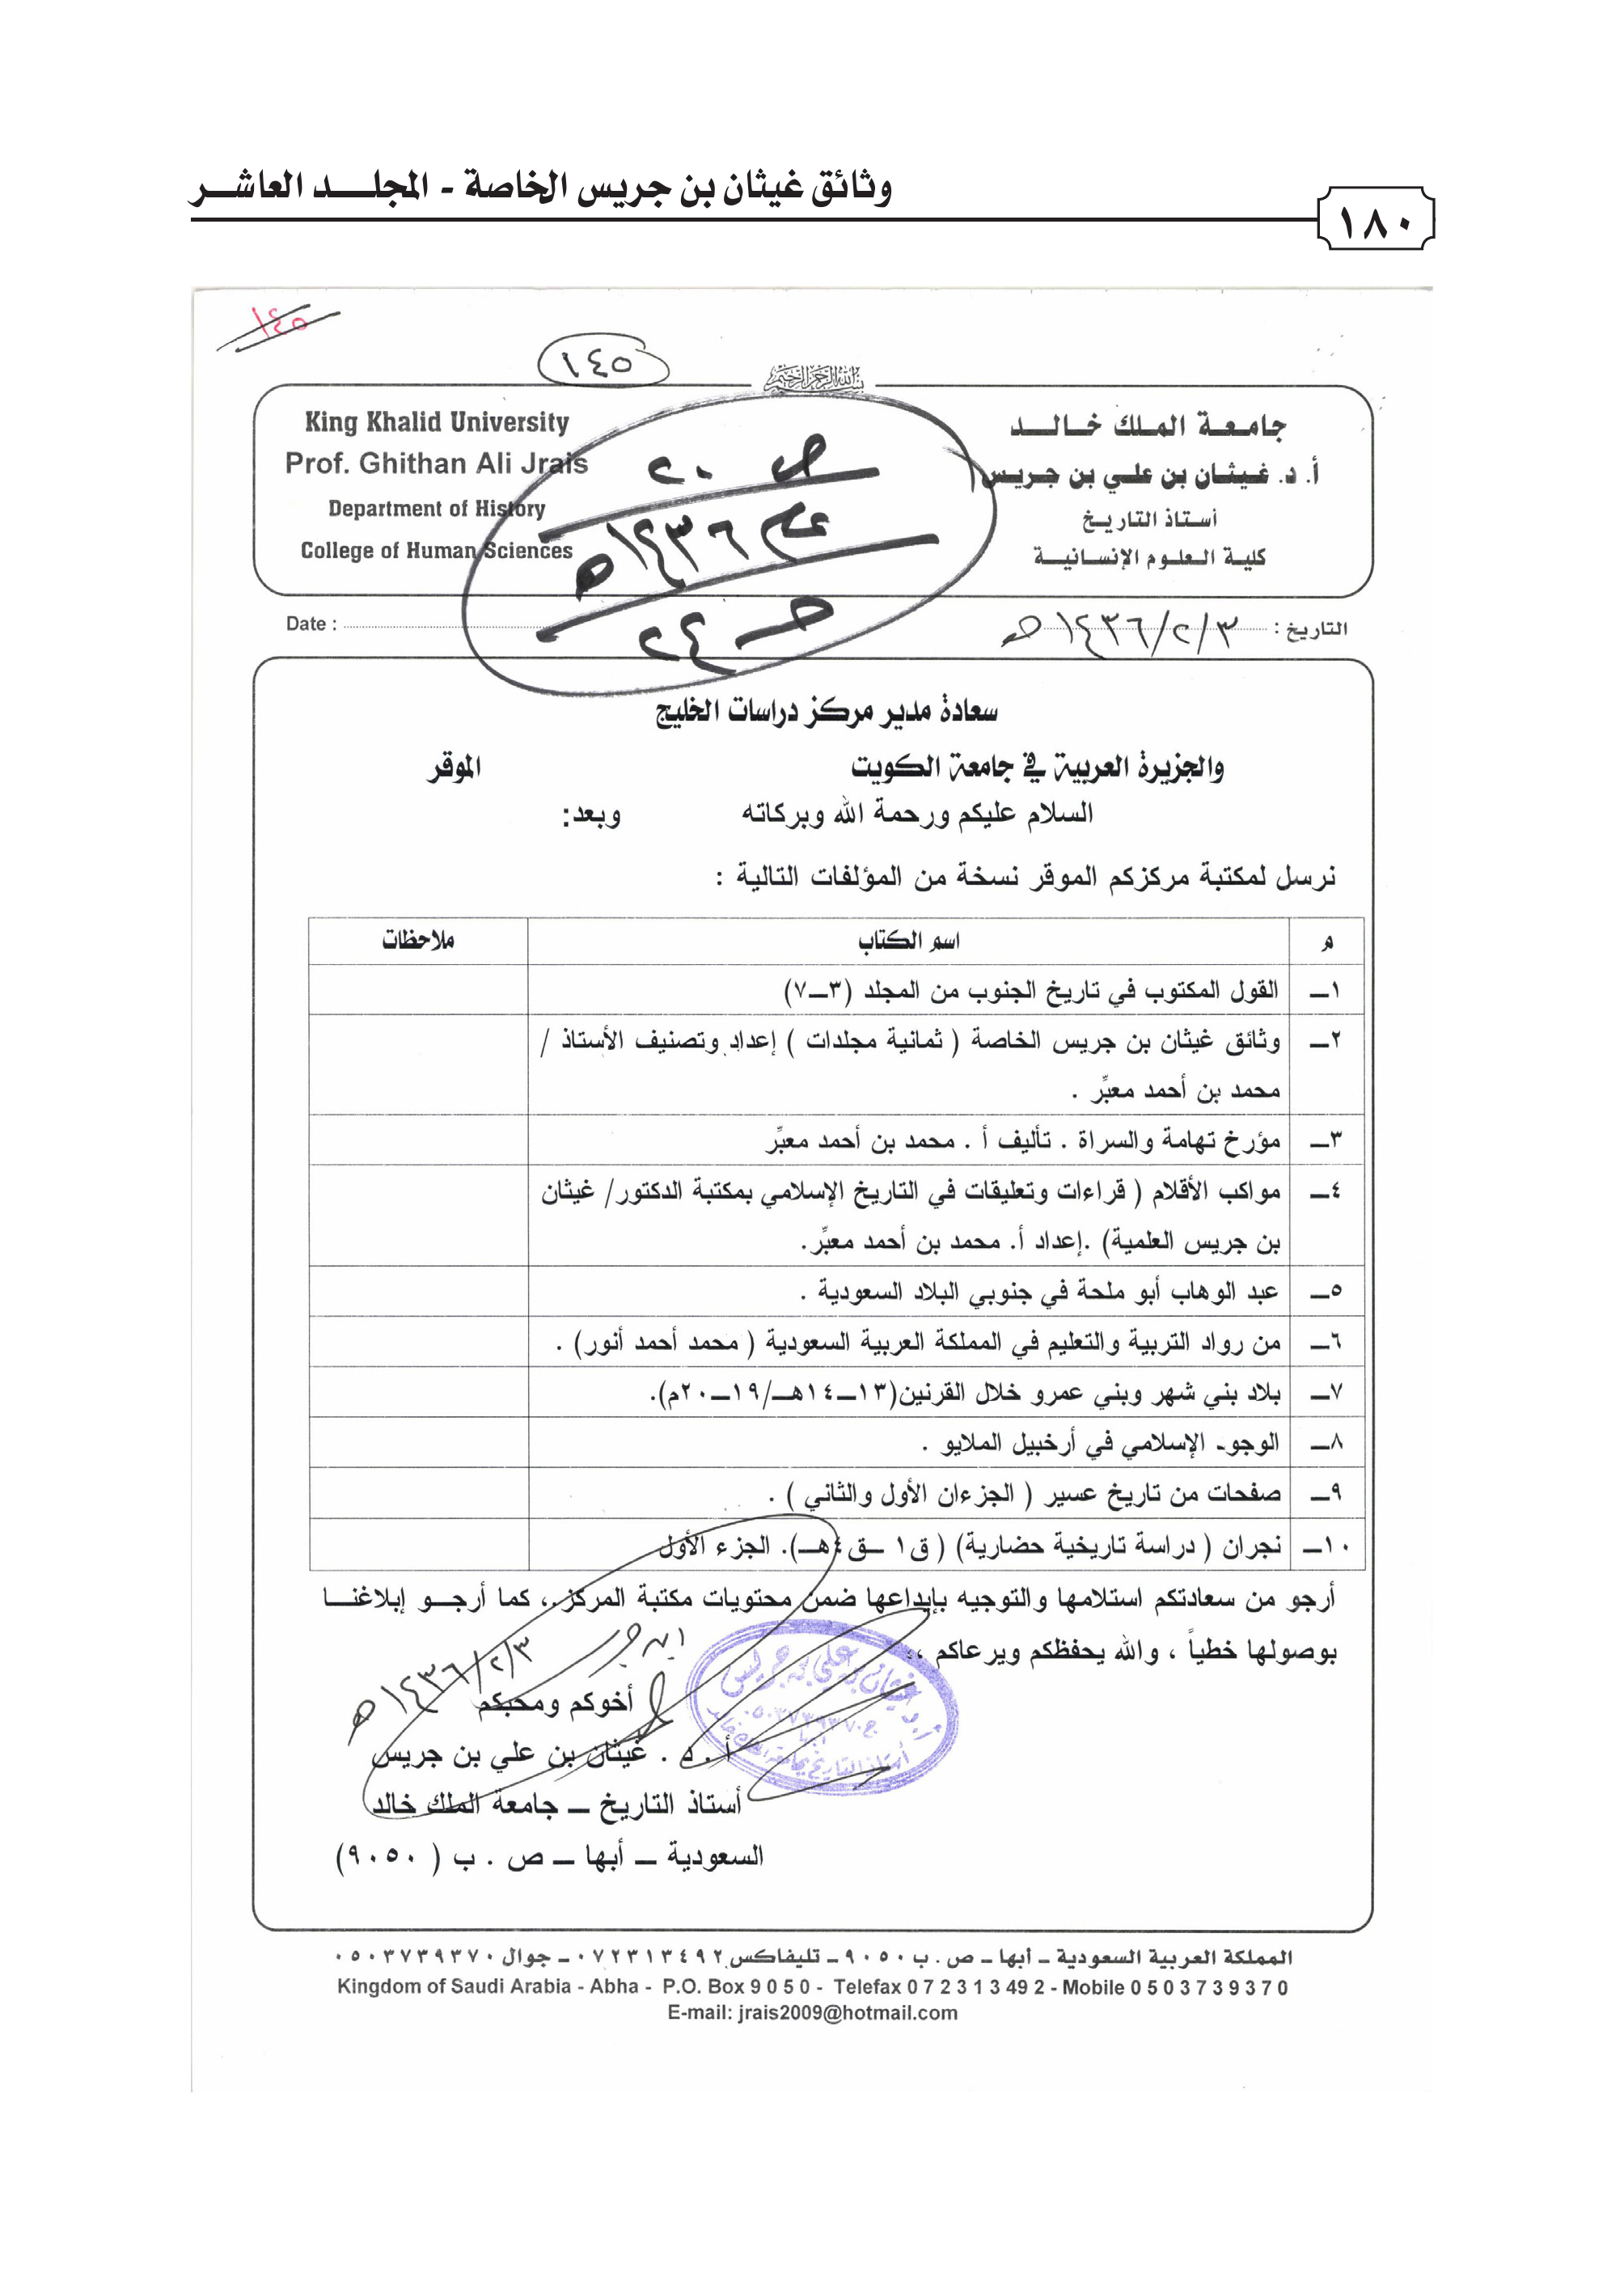 وثائق غيثان بن جريس الخاصة - المجلـــد العاشـــر
١٨٠
١٤٥
١٤٥
بسم الله الرحمن الرحيم
جامعة الملك خالد
أ. د. غيثان بن علي بن جريس
أستاذ التاريخ
كلية العلوم الإنسانية
King Khalid University
Prof. Ghithan Ali Jrais
Department of History
College of Human Sciences
ص ٢٠
عام ١٤٣٦هـ
حـ ٢٤
التاريخ : ٣/٢/١٤٣٦هـ
Date :
سعادة مدير مركز دراسات الخليج
والجزيرة العربية في جامعة الكويت الموقر
السلام عليكم ورحمة الله وبركاته وبعد:
نرسل لمكتبة مركزكم الموقر نسخة من المؤلفات التالية :
م اسم الكتاب ملاحظات
١ــ القول المكتوب في تاريخ الجنوب من المجلد (٣ــ٧)
٢ــ وثائق غيثان بن جريس الخاصة ( ثمانية مجلدات ) إعداد وتصنيف الأستاذ /
محمد بن أحمد معبِّر .
٣ــ مؤرخ تهامة والسراة . تأليف أ . محمد بن أحمد معبِّر
٤ــ مواكب الأقلام ( قراءات وتعليقات في التاريخ الإسلامي بمكتبة الدكتور/ غيثان
بن جريس العلمية) .إعداد أ. محمد بن أحمد معبِّر.
٥ــ عبد الوهاب أبو ملحة في جنوبي البلاد السعودية .
٦ــ من رواد التربية والتعليم في المملكة العربية السعودية ( محمد أحمد أنور) .
٧ــ بلاد بني شهر وبني عمرو خلال القرنين(١٣ــ١٤هــ/١٩ــ٢٠م).
٨ــ الوجود الإسلامي في أرخبيل الملايو .
٩ــ صفحات من تاريخ عسير ( الجزءان الأول والثاني ) .
١٠ــ نجران ( دراسة تاريخية حضارية) ( ق١ ــق٤هــ). الجزء الأول
أرجو من سعادتكم استلامها والتوجيه بإيداعها ضمن محتويات مكتبة المركز.، كما أرجــو إبلاغنــا
بوصولها خطياً ، والله يحفظكم ويرعاكم ،،
ابن جريس
٣/٢/١٤٣٦هـ
أخوكم ومحبكم
أ . د . غيثان بن علي بن جريس
أستاذ التاريخ ــ جامعة الملك خالد
السعودية ــ أبها ــ ص . ب ( ٩٠٥٠)
أ.د غيثان بن علي بن جريس
ج ٠٥٠٣٧٣٩٣٧٠
أبها
أستاذ التاريخ بجامعة الملك خالد
المملكة العربية السعودية ــ أبها ــ ص . ب ٩٠٥٠ ــ تليفاكس ٠٧٢٣١٣٤٩٢ ــ جوال ٠٥٠٣٧٣٩٣٧٠
Kingdom of Saudi Arabia - Abha - P.O. Box 9 0 5 0 - Telefax 0 7 2 3 1 3 49 2 - Mobile 0 5 0 3 7 3 9 3 7 0
E-mail: jrais2009@hotmail.com